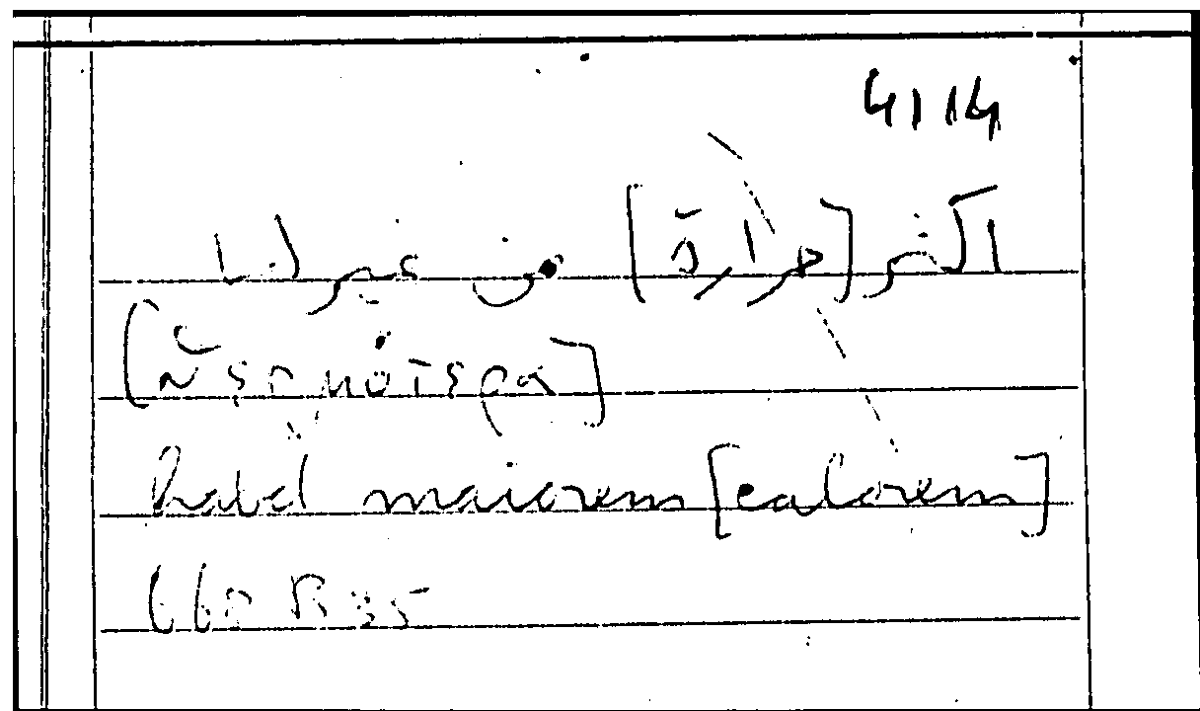 4114
اكثر [حرارة] من غيرها
[θερμότερα]
habet maiorem [calorem]
660 B 35